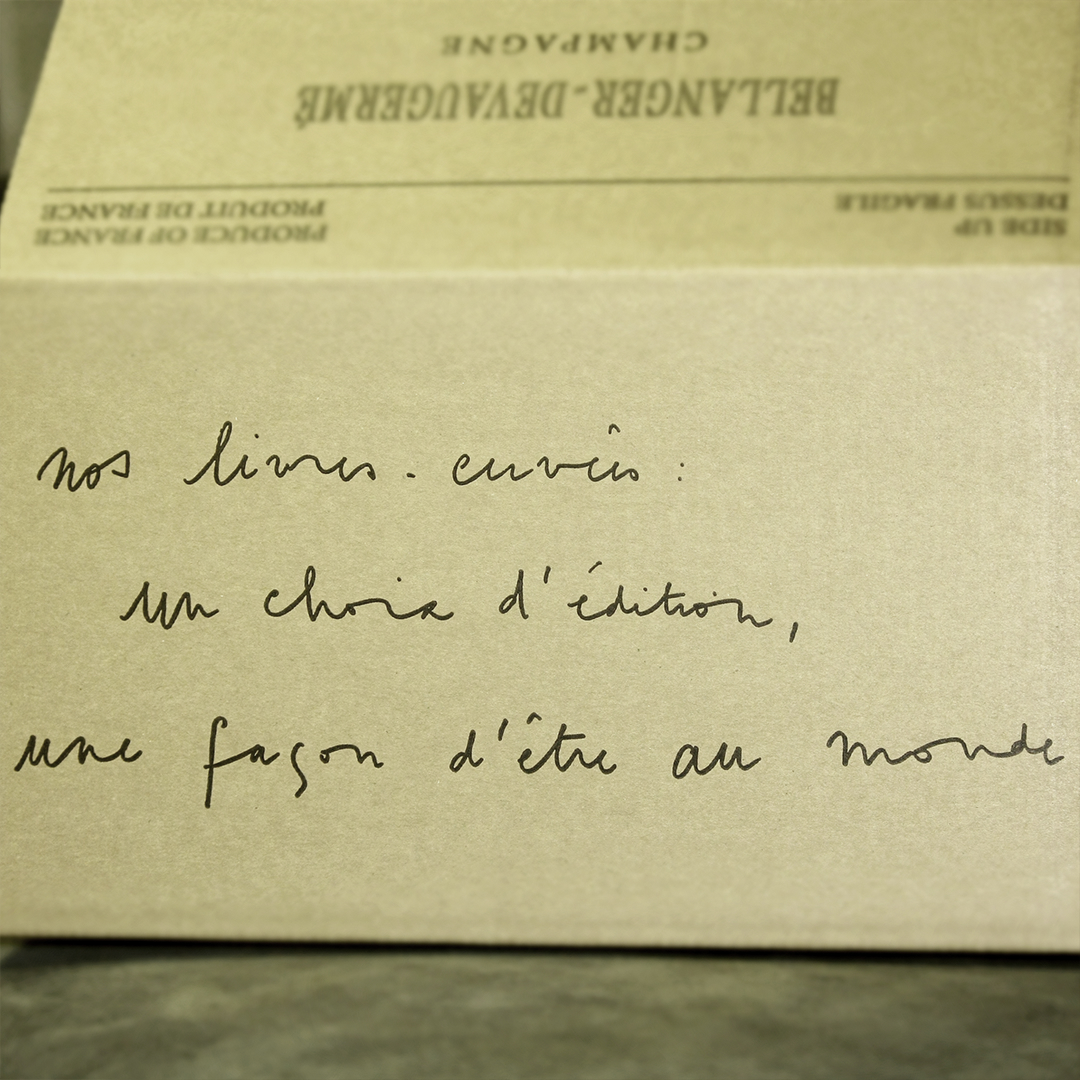 CHAMPAGNE
BELLANGER-DEVAUGERMÉ
PRODUIT DE FRANCE
PRODUCE OF FRANCE
DESSUS FRAGILE
SIDE UP
nos livres-cuvées :
un choix d'édition,
une façon d'être au monde